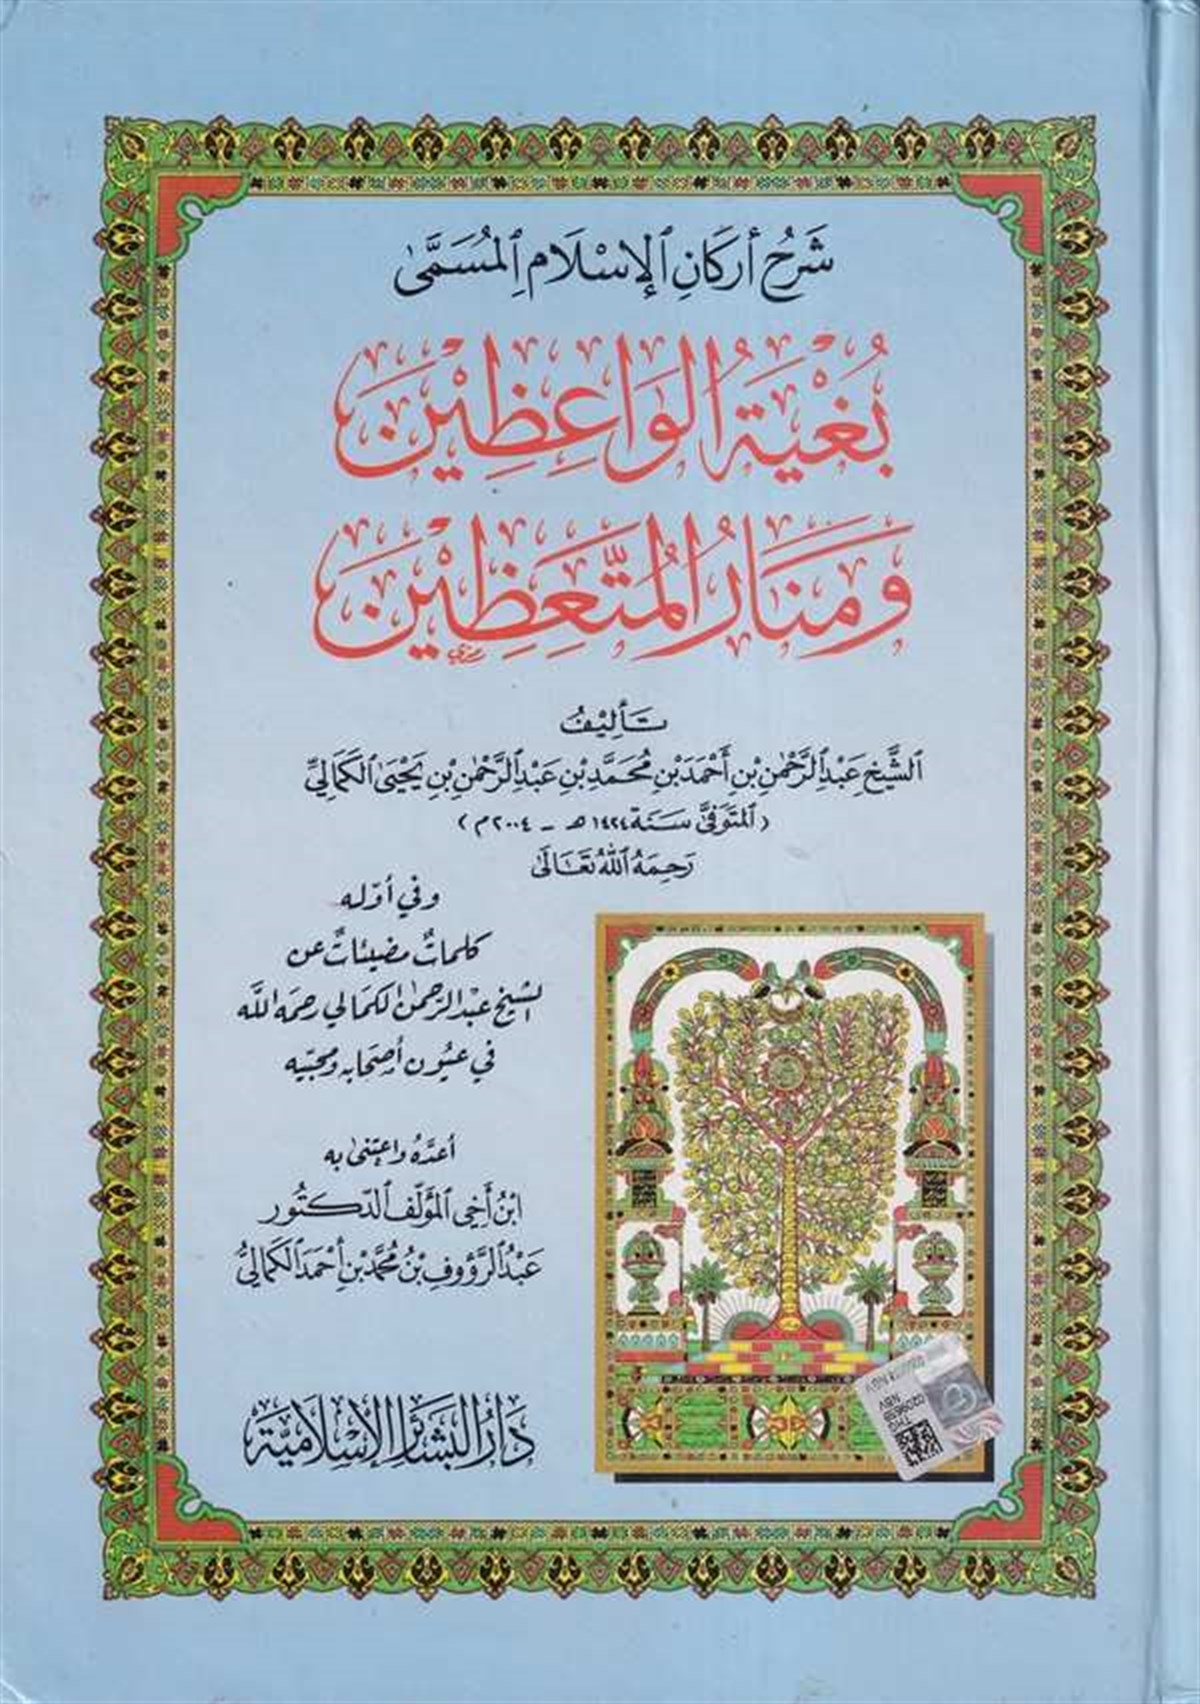 شَرْحُ أَرْكَانِ الإِسْلَامِ المُسَمَّى
بُغْيَةُ الوَاعِظِيْنَ
وَمَنَارُ المُتَّعِظِيْنَ
تَأْلِيْفُ
الشَّيْخِ عَبْدِ الرَّحْمٰنِ بْنِ أَحْمَدَ بْنِ مُحَمَّدِ بْنِ عَبْدِ الرَّحْمٰنِ بْنِ يَحْيَى الكَمَالِيِّ
(المُتَوَفَّى سَنَة ١٤٢٤ هـ - ٢٠٠٤ م)
رَحِمَهُ اللهُ تَعَالَى
وفي أوّله
كلماتٌ مضيئاتٌ عن
الشيخ عبد الرحمن الكمالي رحمه الله
في عيُون أصحَابه ومحبّيه
أعدَّهُ واعتنى به
ابْنُ أَخِي المُؤَلِّفِ الدّكتُور
عَبْدُ الرَّؤُوفِ بْنُ مُحَمَّدِ بْنِ أَحْمَدَ الكَمَالِيُّ
دَارُ البَشَائِرِ الإِسْلَامِيَّة